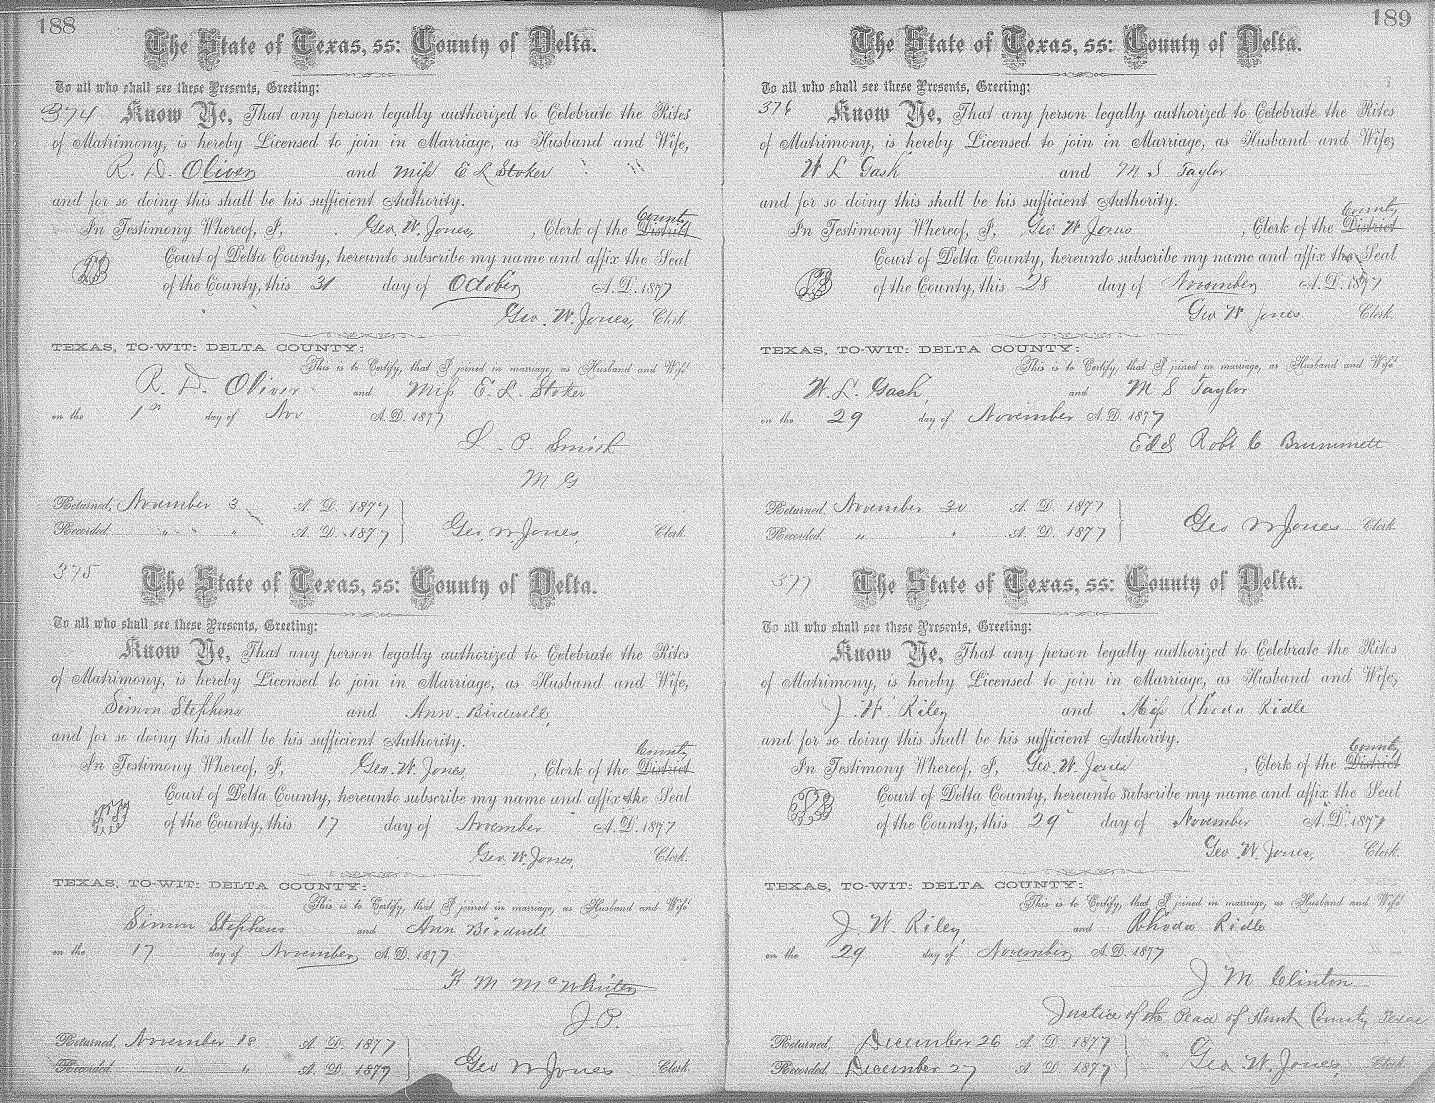 188
The State of Texas, ss: County of Delta.
To all who shall see these Presents, Greeting:
374 Know Ye, That any person legally authorized to Celebrate the Rites
of Matrimony, is hereby Licensed to join in Marriage, as Husband and Wife,
R. D. Oliver and miss E L Stoker
and for so doing this shall be his sufficient Authority.
In Testimony Whereof, I, Geo. W. Jones, , Clerk of the District County
Court of Delta County, hereunto subscribe my name and affix the Seal
of the County, this 31 day of October A.D. 1877
Geo. W. Jones, Clerk.
TEXAS, TO-WIT: DELTA COUNTY:
This is to Certify, that I joined in marriage, as Husband and Wife
R. D. Oliver and Miss E. L. Stoker
on the 1st day of Nov A.D. 1877
S. P. Smith
M G
Returned, November 3 A. D. 1877
Recorded. " " " A. D. 1877 Geo. W Jones, Clerk.
375 The State of Texas, ss: County of Delta.
To all who shall see these Presents, Greeting:
Know Ye, That any person legally authorized to Celebrate the Rites
of Matrimony, is hereby Licensed to join in Marriage, as Husband and Wife,
Simon Stephens and Ann. Birdwell,
and for so doing this shall be his sufficient Authority.
In Testimony Whereof, I, Geo. W. Jones , Clerk of the District County
Court of Delta County, hereunto subscribe my name and affix the Seal
of the County, this 17 day of November A.D. 1877
Geo W. Jones, Clerk.
TEXAS, TO-WIT: DELTA COUNTY:
This is to Certify, that I joined in marriage, as Husband and Wife
Simon Stephens and Ann Birdwell
on the 17 day of November A.D. 1877
F M McWhirter
J. P.
Returned, November 18 A. D. 1877
Recorded. " " A. D. 1877 Geo W Jones Clerk.
189
The State of Texas, ss: County of Delta.
To all who shall see these Presents, Greeting:
376 Know Ye, That any person legally authorized to Celebrate the Rites
of Matrimony, is hereby Licensed to join in Marriage, as Husband and Wife,
W L Gash and M S Taylor
and for so doing this shall be his sufficient Authority.
In Testimony Whereof, I, Geo W Jones , Clerk of the District County
Court of Delta County, hereunto subscribe my name and affix the Seal
of the County, this 28 day of November A.D. 1877
Geo W Jones Clerk.
TEXAS, TO-WIT: DELTA COUNTY:
This is to Certify, that I joined in marriage, as Husband and Wife
W. L. Gash, and M S Taylor
on the 29 day of November A.D. 1877
Eld Robt C Brummett
Returned, November 30 A. D. 1877
Recorded. " " A. D. 1877 Geo W Jones Clerk.
377 The State of Texas, ss: County of Delta.
To all who shall see these Presents, Greeting:
Know Ye, That any person legally authorized to Celebrate the Rites
of Matrimony, is hereby Licensed to join in Marriage, as Husband and Wife,
J. W. Riley and Miss Rhoda Ridle
and for so doing this shall be his sufficient Authority.
In Testimony Whereof, I, Geo. W. Jones , Clerk of the District County
Court of Delta County, hereunto subscribe my name and affix the Seal
of the County, this 29 day of November A.D. 1877
Geo. W. Jones, Clerk.
TEXAS, TO-WIT: DELTA COUNTY:
This is to Certify, that I joined in marriage, as Husband and Wife
J W. Riley, and Rhoda Ridle
on the 29 day of November A.D. 1877
J M Clinton
Justice of the Peace of Hunt County Texas
Returned, December 26 A. D. 1877
Recorded. December 27 A. D. 1877 Geo. W. Jones, Clerk.